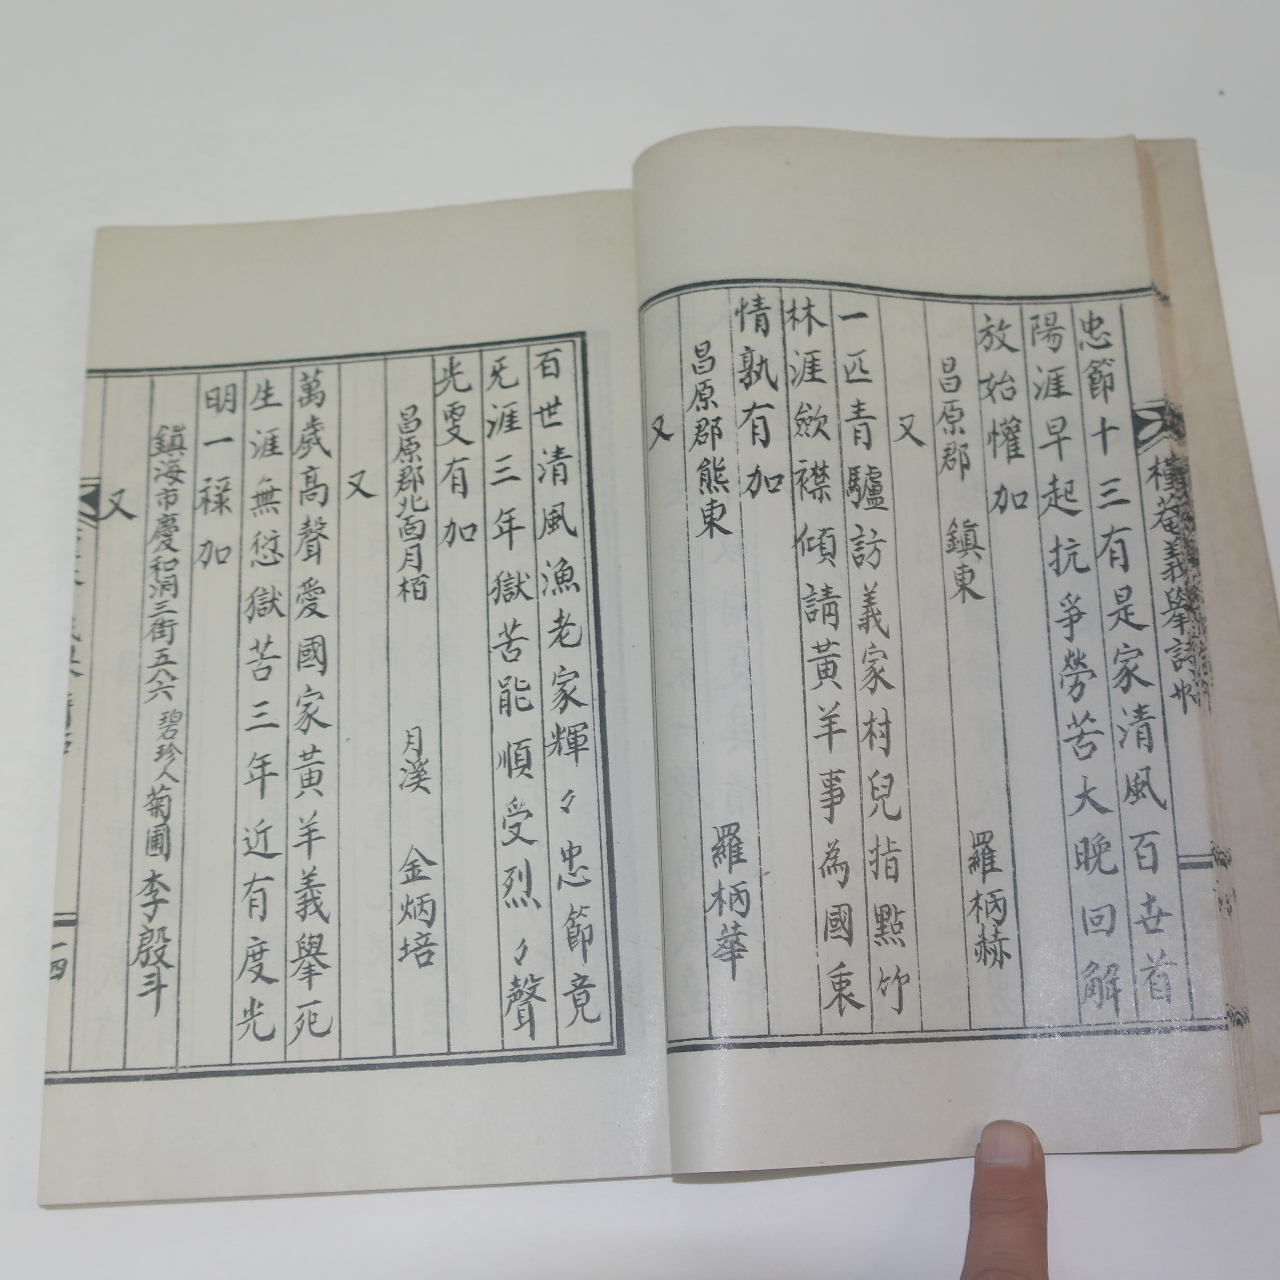 菴義擧詩帖
忠節十三有是家清風百世首
陽涯早起抗爭勞苦大晩回解
放始懽加
昌原郡 鎭東 羅柄赫
又
一匹青驢訪義家村兒指點竹
林涯斂襟傾請黃羊事為國衷
情孰有加
昌原郡熊東 羅柄華
又
百世清風漁老家輝々忠節竟
旡涯三年獄苦能順受烈々聲
光更有加
昌原郡北面月栢 月溪 金炳培
又
萬歲高聲愛國家黃羊義擧死
生涯無愆獄苦三年近有度光
明一祿加
鎭海市慶和洞三街五八六 碧珍人菊圃 李殷斗
又
一四